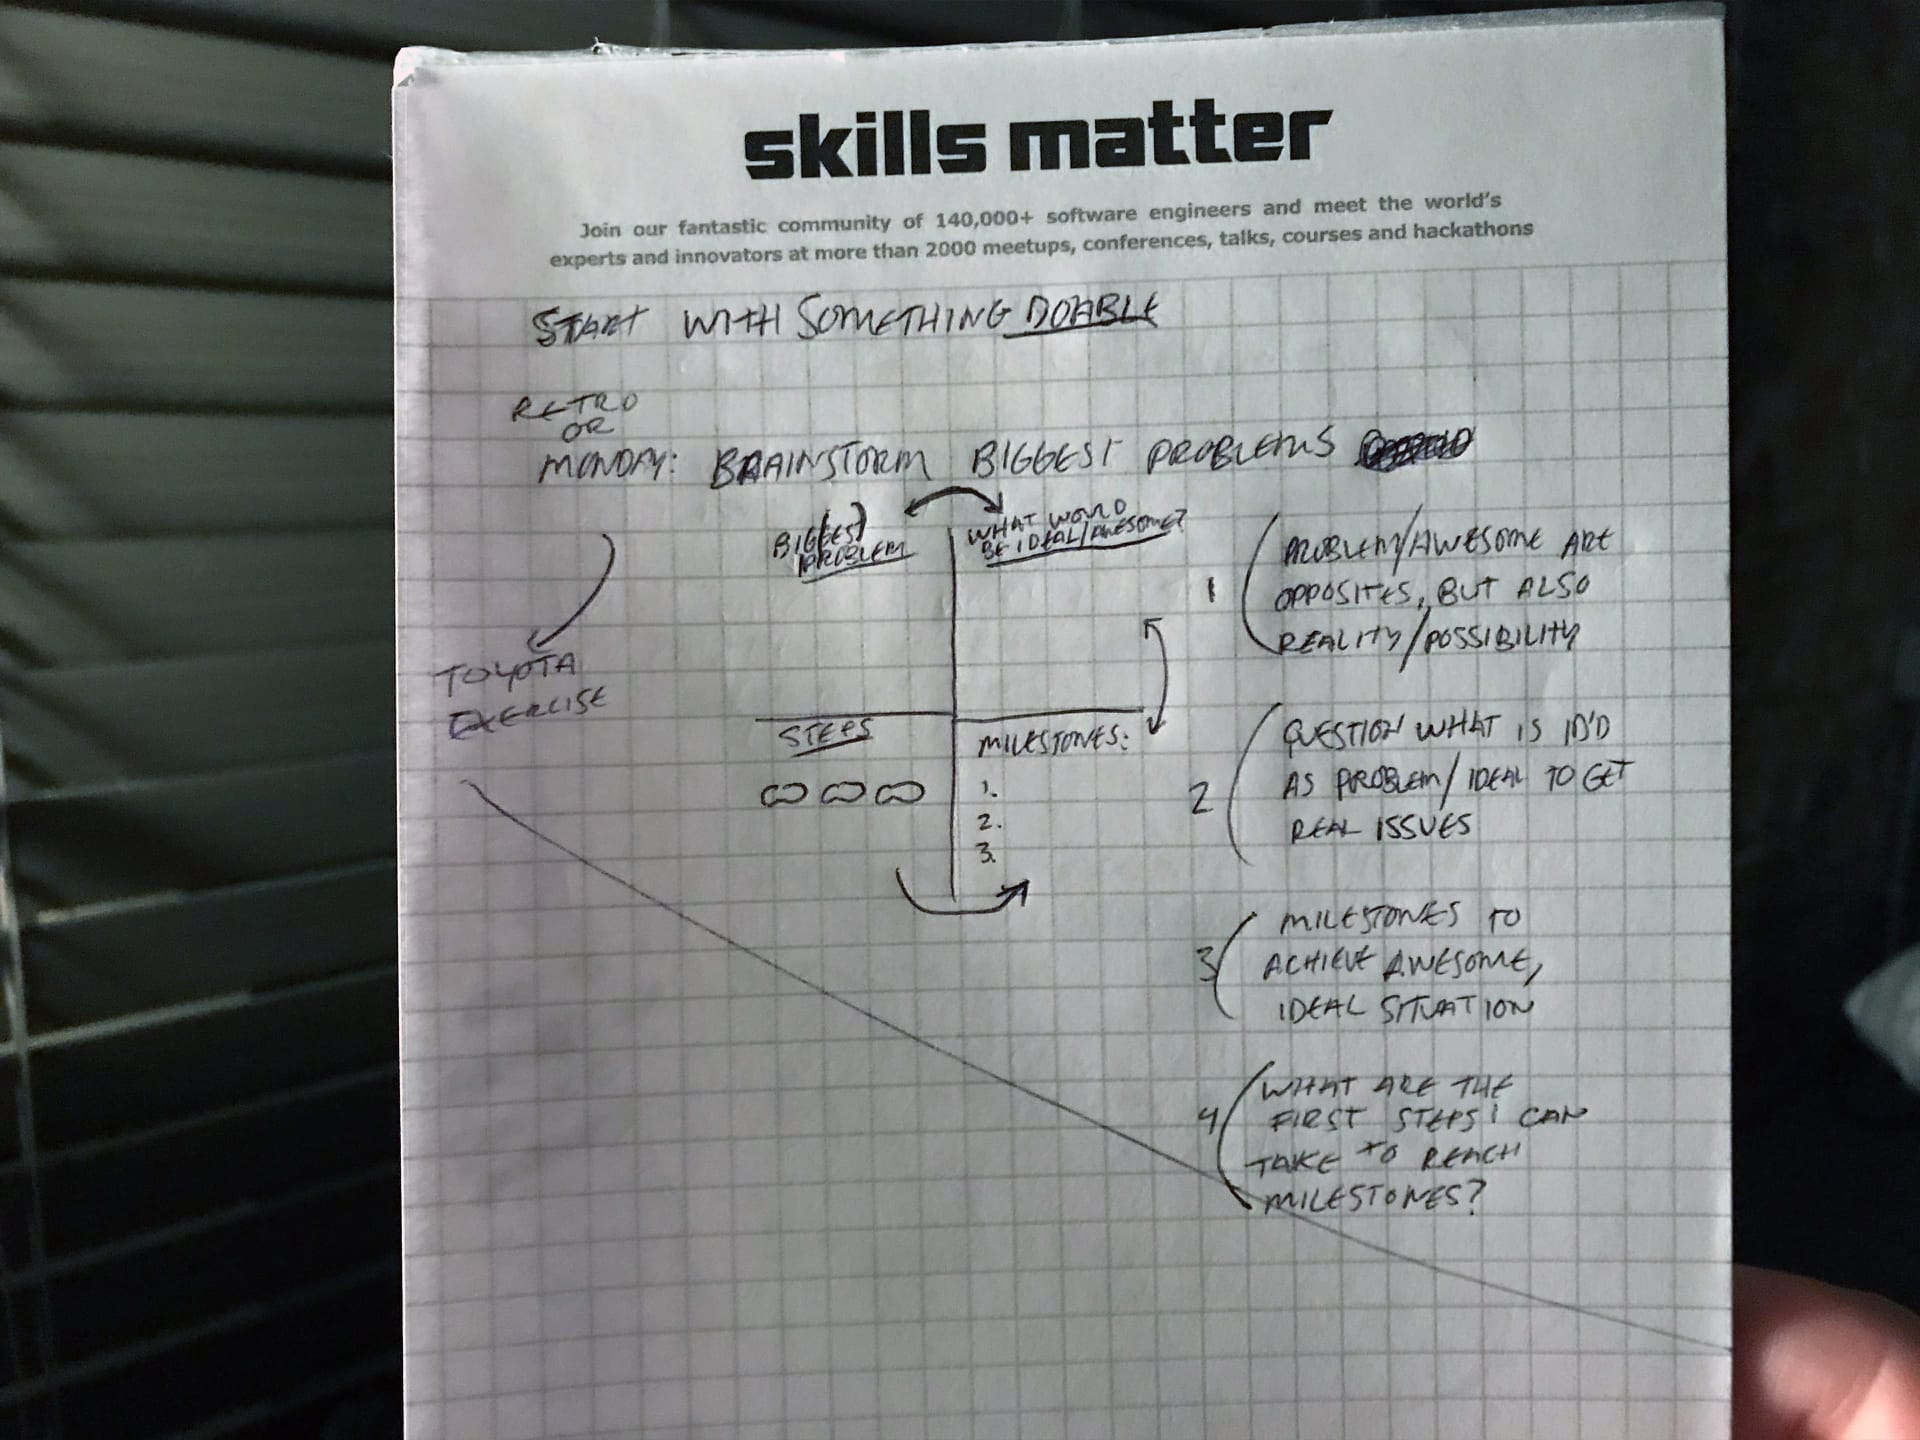 skills matter
Join our fantastic community of 140,000+ software engineers and meet the world's
experts and innovators at more than 2000 meetups, conferences, talks, courses and hackathons
START WITH SOMETHING DOABLE
RETRO
OR
MONDAY: BRAINSTORM BIGGEST PROBLEMS
BIGGEST
PROBLEM
WHAT WOULD
BE IDEAL/AWESOME?
TOYOTA
EXERCISE
STEPS
MILESTONES:
1.
2.
3.
1
PROBLEM/AWESOME ARE
OPPOSITES, BUT ALSO
REALITY/POSSIBILITY
2
QUESTION WHAT IS ID'D
AS PROBLEM/IDEAL TO GET
REAL ISSUES
3
MILESTONES TO
ACHIEVE AWESOME,
IDEAL SITUATION
4
WHAT ARE THE
FIRST STEPS I CAN
TAKE TO REACH
MILESTONES?